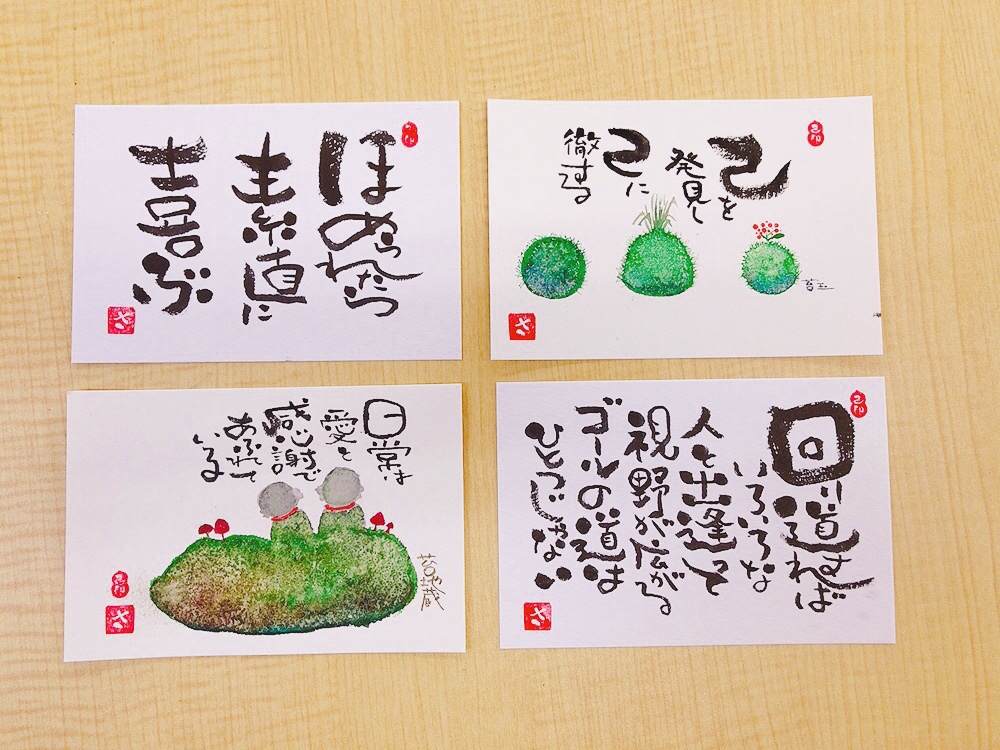 ほめられたら
素直に
喜ぶ
己書
さ
己を
発見し
己に
徹する
苔玉
己書
さ
日常は
愛と
感謝で
あふれて
いる
苔地蔵
さ
回り道すれば
いろいろな
人と出逢って
視野が広がる
ゴールの道は
ひとつじゃない
さ